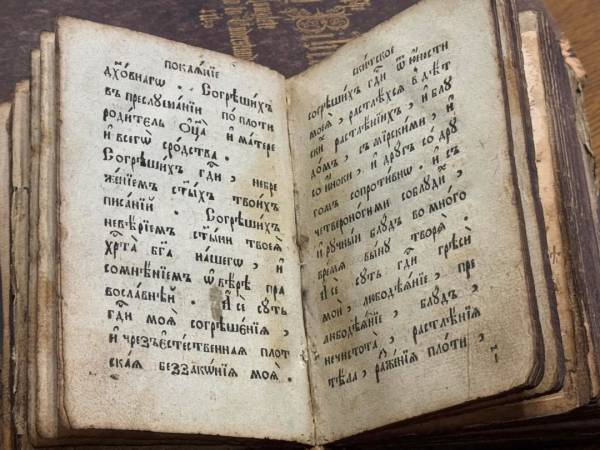 покаѧ́нїе
дх҃о́внагѡ . Согрѣши́хъ
въ преслꙋша́нїи по пло́ти
роди́тель Оц҃а̀ и҆ ма́тере
и҆ всегѡ̀ сро́дства .
Согрѣши́хъ гдⷭ҇и , небре
же́нїемъ ст҃ы́хъ твои́хъ
писа́нїй . Согрѣши́хъ
невѣ́рїемъ ст҃ы́ни твоеѧ̀
хрⷭ҇та̀ бг҃а на́шегѡ , и҆
сомнѣ́нїемъ ѡ҆ вѣ́рѣ пра
восла́внѣй . И҆ сѐ сꙋ́ть
гдⷭ҇и моѧ̑ согрѣше́нїѧ ,
и҆ чрезъесте́ственнаѧ пло́т
скаѧ беззакѡ́нїѧ моѧ̑ .
ски́тское
согрѣши́хъ гдⷭ҇и ѿ ю҆́ности
моеѧ̀ , растлѣ́хсѧ въ дѣ́т
ски растлѣ́нїихъ , и҆ блꙋ
до́мъ , съ мирски́ми , и҆
со и҆́ноки , и҆ дрꙋ́гъ со дрꙋ́
гомъ сопроти́внѡ . и҆ съ
четвероно́гими соблꙋди́хъ ,
и҆ рꙋ́чный блꙋ́дъ во мно́го
вре́мѧ вы́нꙋ творѧ̀ .
И҆ сѐ сꙋ́ть гдⷭ҇и грѣсѝ
моѝ , любодѣѧ́нїе , пре
любодѣѧ́нїе , блꙋ́дъ ,
нечистота̀ , растлѣ́нїѧ
тѣ́ла , ражже́нїѧ пло́ти ,